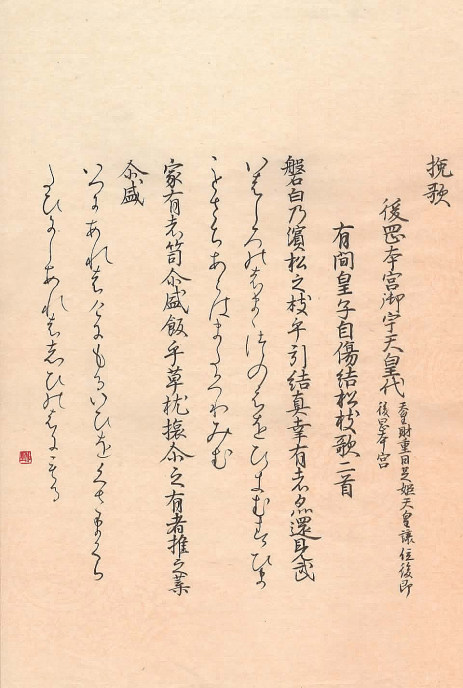 挽歌
後岡本宮御宇天皇代 天皇財重日足姫天皇譲位後即後岡本宮
有間皇子自傷結松枝歌二首
磐白乃濱松之枝乎引結真幸有者亦還見武
いはしろのはままつのえをひきむすひま
さきくあらはまたかへりみむ
家有者笥尓盛飯乎草枕旅尓之有者椎之葉
尓盛
いへにあれはけにもるいひをくさまくら
たひにしあれはしひのはにもる